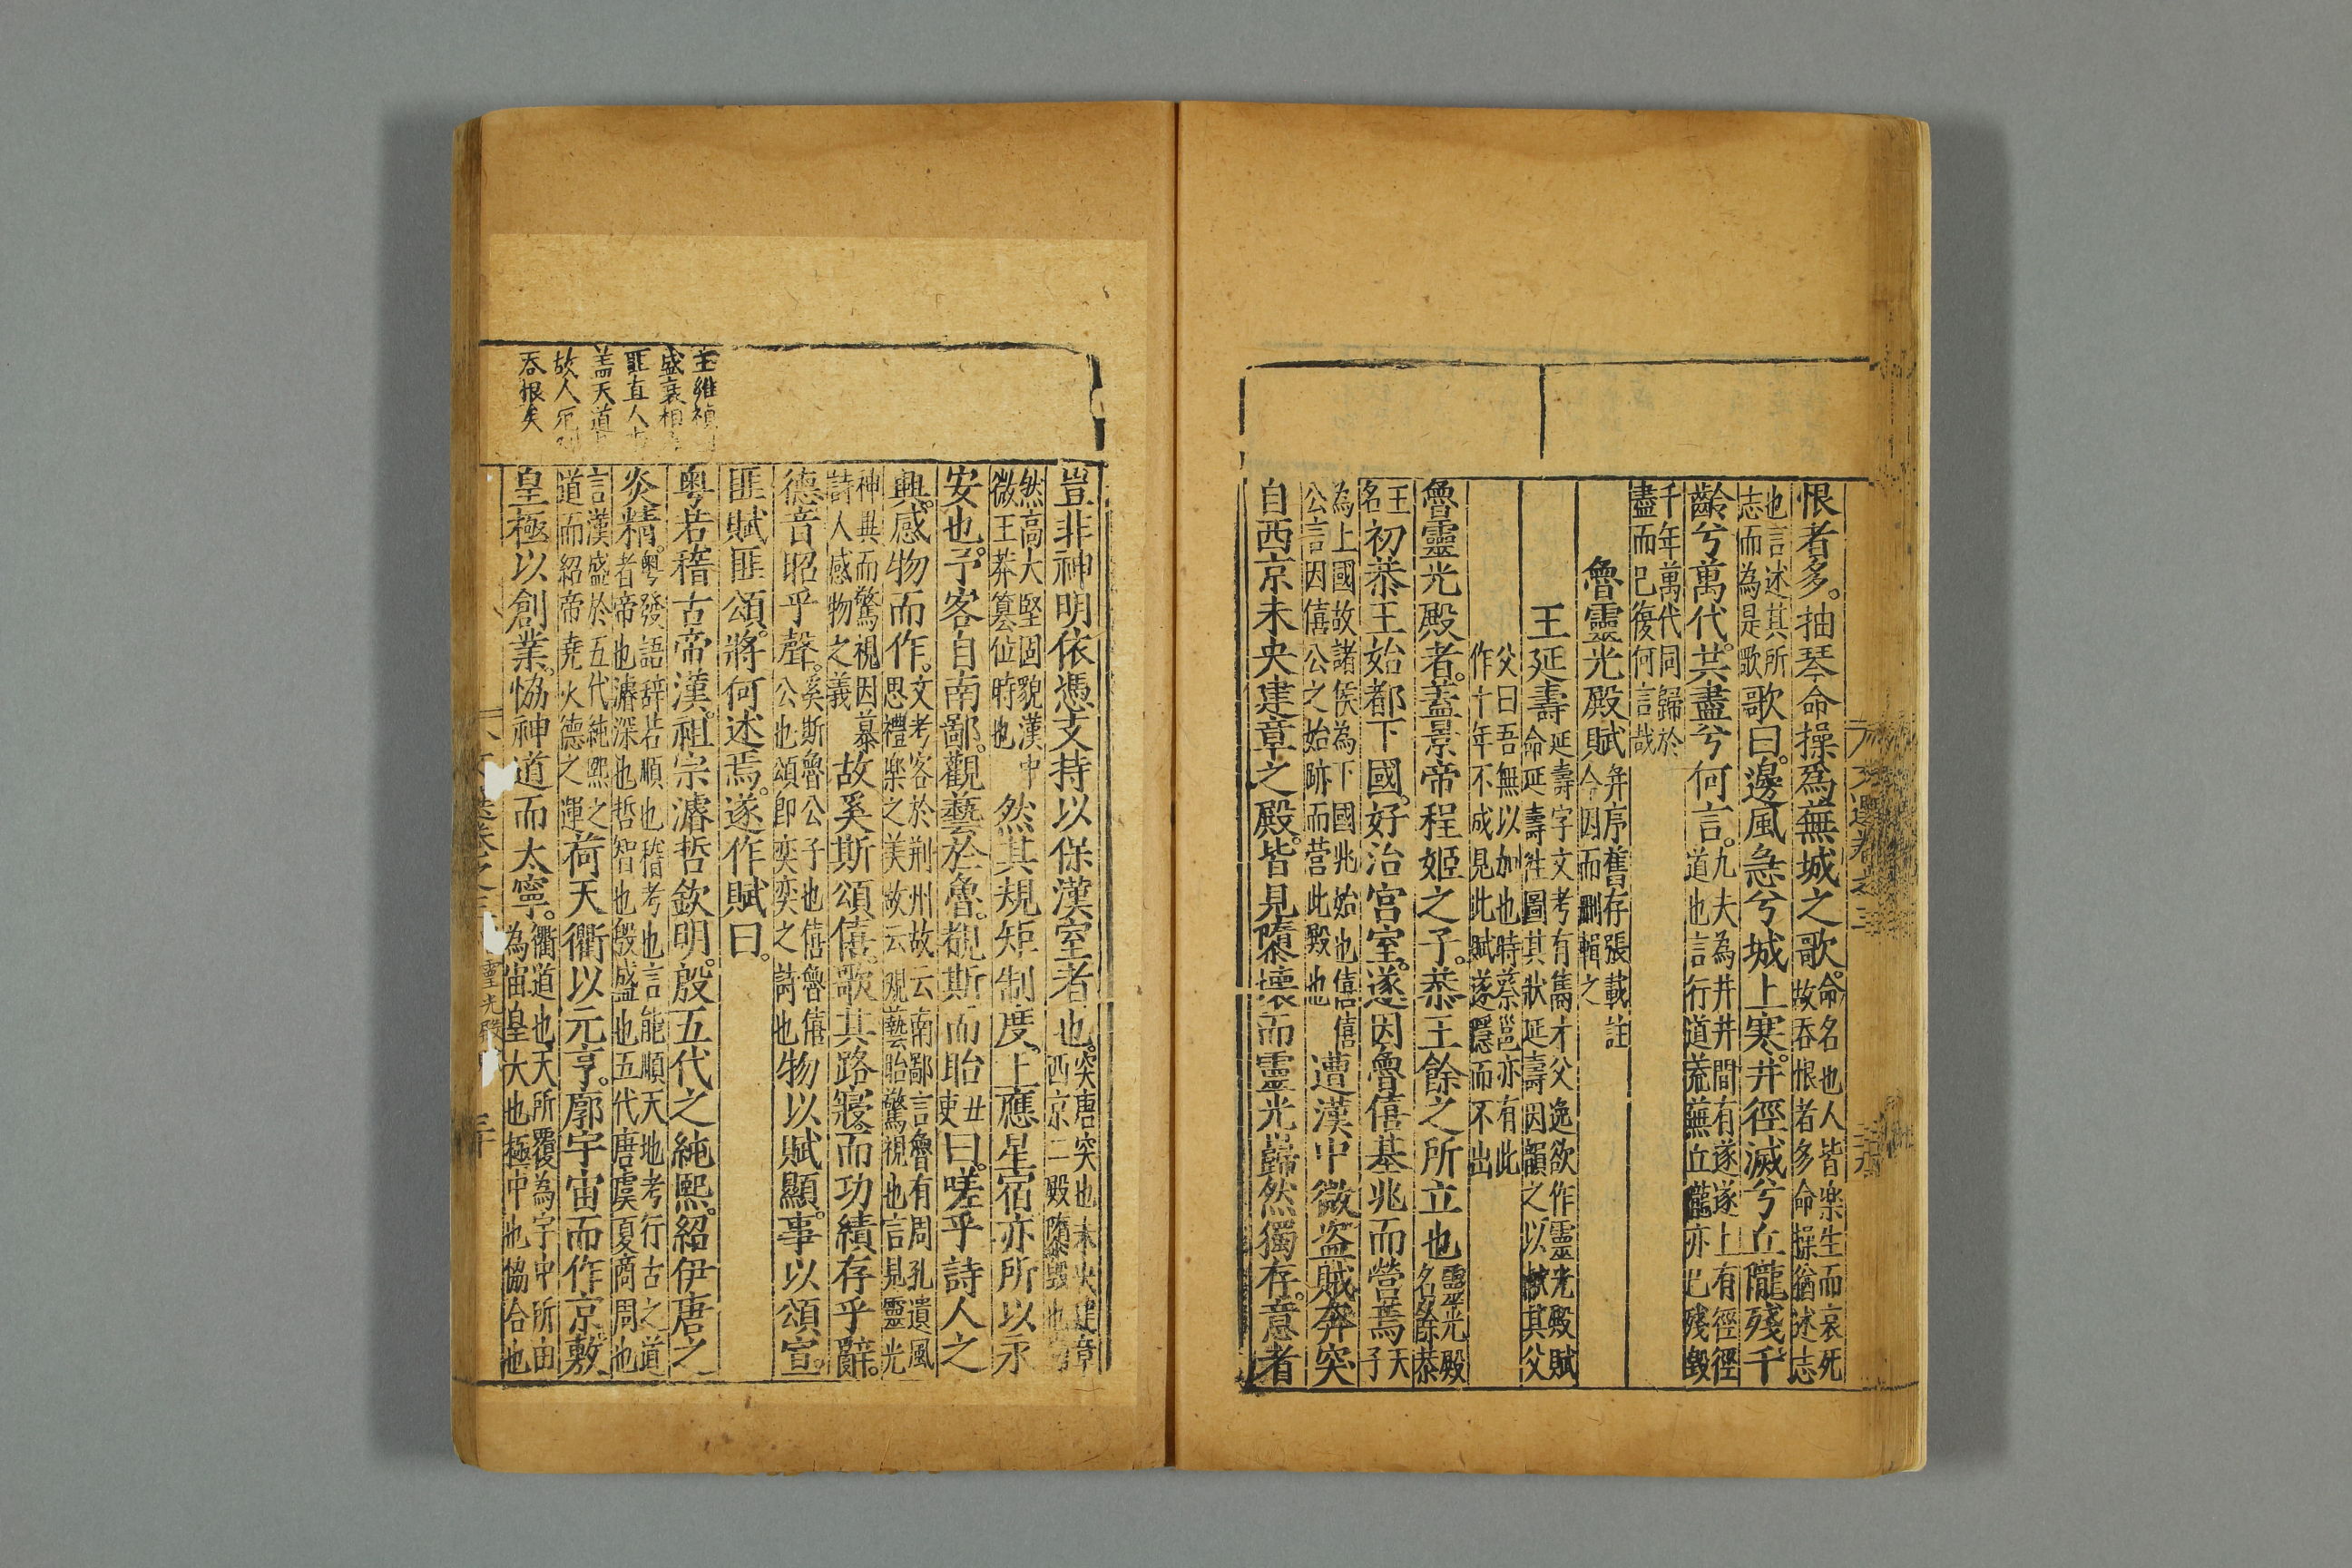 恨者多。抽琴命操爲蕪城之歌。命名也人皆樂生而哀死故吞恨者多命操猶述志
也言述其所志而為是歌歌曰。邊風急兮城上寒。井徑滅兮丘隴殘千
齡兮萬代。共盡兮何言。九夫為井井間有遂遂上有徑徑道也言行道荒蕪丘隴亦已殘毀
千年萬代同歸於盡而已復何言哉
魯靈光殿賦并序舊存張載註今因而刪輯之
王延壽延壽字文考有雋才父逸欲作靈光殿賦命延壽往圖其狀延壽因韻之以献其父
父曰吾無以加也時蔡邕亦有此作十年不成見此賦遂隱而不出
魯靈光殿者。蓋景帝程姬之子。恭王餘之所立也靈光殿名餘恭
王名初恭王始都下國。好治宮室。遂因魯僖基兆而營焉天子
為上國故諸侯為下國兆始也僖僖公言因僖公之始跡而营此殿也遭漢中微盗賊奔突
自西京未央建章之殿。皆見隳壞而靈光巋然獨存。意者
豈非神明依憑支持以保漢室者也。突唐突也未央建章西京二殿隳毀也
然高大堅固貌漢中微王莽篡位時也然其規矩制度。上應星宿亦所以永
安也。予客自南鄙。觀藝於魯。覩斯而眙丑吏曰。嗟乎詩人之
興。感物而作。文考客於荆州故云南鄙言魯有周孔遺風思禮樂之美故云觀藝眙驚視也言見靈光
神異而驚視因慕詩人感物之義故奚斯頌僖。歌其路寢而功績存乎辭。
德音昭乎聲。奚斯魯公子也僖魯僖公也頌即奕奕之詩也物以賦顯。事以頌宣。
匪賦匪頌。將何述焉。遂作賦曰。
粵若稽古帝漢。祖宗濬哲欽明。殷五代之純熙。紹伊唐之
炎精。粵發語辞若順也稽考也言能順天地考行古之道者帝也濬深也哲智也殷盛也五代唐虞夏商周也
言漢盛於五代純熙之道而紹帝尭火德之運荷天衢以元亨。廓宇宙而作京。敷
皇極以創業。恊神道而太寧。衢道也天所覆為宇中所由為宙皇大也極中也恊合也
王維禎
盛衰相
匪直人
盖天道
故人
吞恨矣